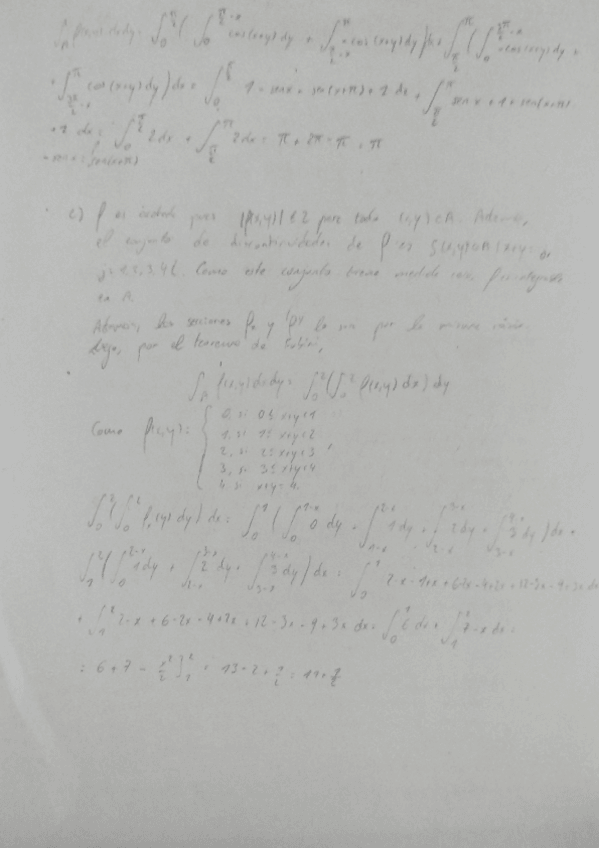 ∫_A f(x,y) dxdy = ∫_0^{π/2} ( ∫_0^{π/2-x} cos(x+y) dy + ∫_{π/2-x}^{π} -cos(x+y) dy ) dx + ∫_{π/2}^{π} ( ∫_0^{3π/2-x} -cos(x+y) dy +
+ ∫_{3π/2-x}^{π} cos(x+y) dy ) dx = ∫_0^{π/2} 1 - sen x - sen(x+π) + 1 dx + ∫_{π/2}^{π} sen x + 1 + sen(x+π)
+ 1 dx = ∫_0^{π/2} 2 dx + ∫_{π/2}^{π} 2 dx = π + 2π - π = π
- sen x = sen(x+π)
c) f es acotada pues |f(x,y)| ≤ 2 para todo (x,y) ∈ A. Además,
el conjunto de discontinuidades de f es {(x,y) ∈ A | x+y =
j = 1, 2, 3, 4}. Como este conjunto tiene medida cero, f es integrable
en A.
Además, las secciones f_x y f^y lo son por la misma
por el teorema de Fubini,
∫_A f(x,y) dxdy = ∫_0^2 ( ∫_0^2 f(x,y) dx ) dy
Como f(x,y) = { 0, si 0 ≤ x+y < 1
1, si 1 ≤ x+y < 2
2, si 2 ≤ x+y < 3
3, si 3 ≤ x+y < 4
4, si x+y = 4
∫_0^2 ( ∫_0^2 f(x,y) dy ) dx = ∫_0^1 ( ∫_0^{1-x} 0 dy + ∫_{1-x}^{2-x} 1 dy + ∫_{2-x}^{3-x} 2 dy + ∫_{3-x}^{4-x} 3 dy ) dx +
∫_1^2 ( ∫_0^{2-x} 1 dy + ∫_{2-x}^{3-x} 2 dy + ∫_{3-x}^{4-x} 3 dy ) dx = ∫_0^1 2-x-1+x+6-2x-4+2x+12-3x-9+3x dx
+ ∫_1^2 2-x+6-2x-4+2x+12-3x-9+3x dx = ∫_0^1 6 dx + ∫_1^2 7-x dx =
= 6 + 7 - x²/2 ]_1^2 = 13 - 2 + 1/2 = 11 + 1/2